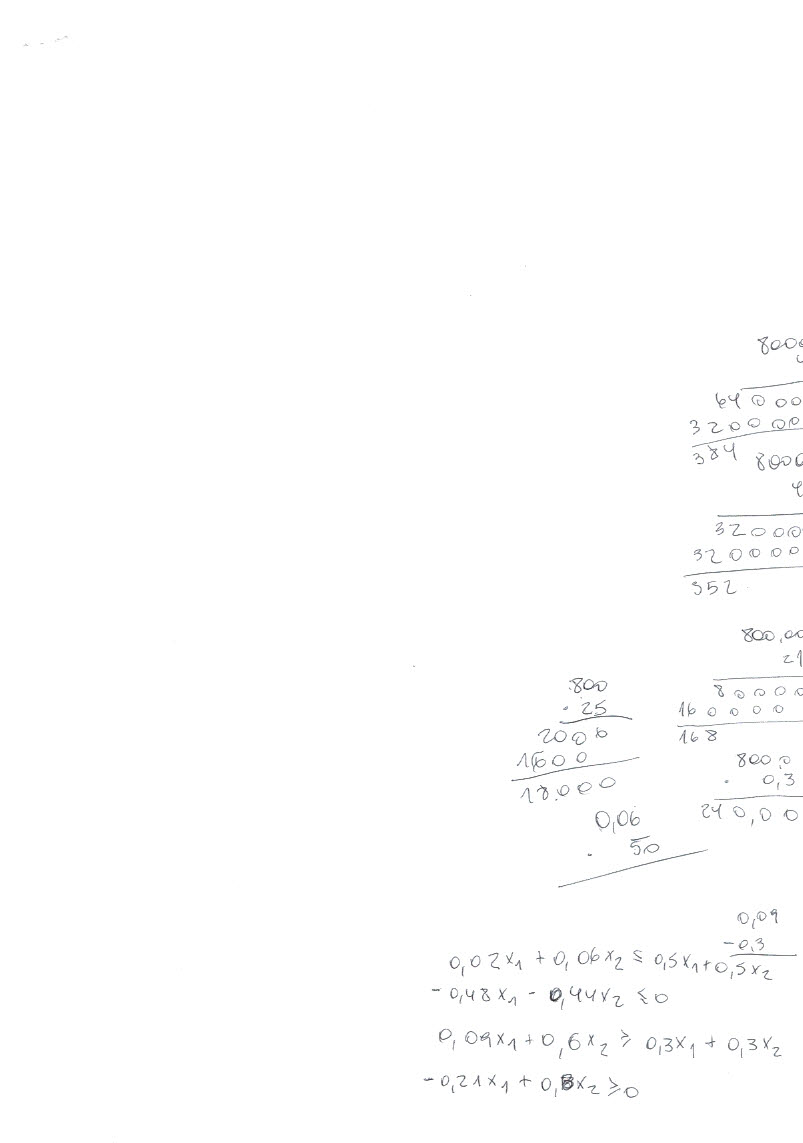 8000
64 0 00
3 2 0 0 0 00
384
8000
4
3 2 0 0 0
3 2 0 0 0 0
352
800,00
21
8 0 0 0 0
16 0 0 0 0
168
800
· 25
2000
1600
18.000
800 0
· 0,3
24 0,0 0
0,06
· 50
0,09
-0,3
0,02x1 + 0,06x2 ≤ 0,5x1+0,5x2
- 0,48x1 - 0,44x2 ≤ 0
0,09x1 + 0,6x2 ≥ 0,3x1 + 0,3x2
- 0,21x1 + 0,3x2 ≥ 0